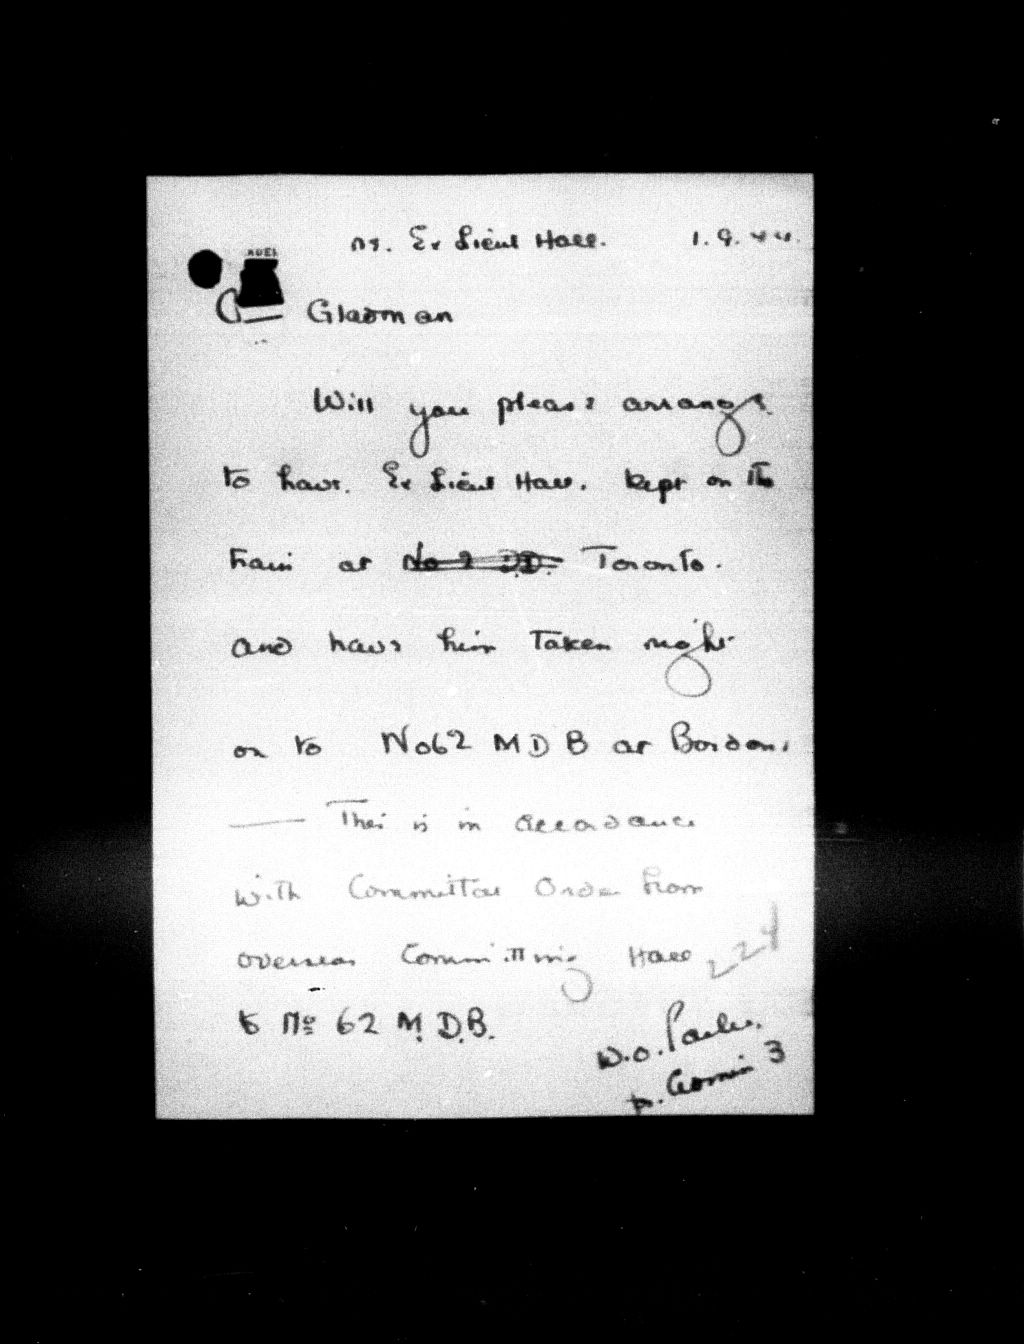 re. Ex Lieut Hall. 1.9.44.
Gladman
Will you please arrange
to have. Ex Lieut Hall. kept on the
train at No 2 D.D. Toronto.
and have him Taken right
on to No62 MDB at Borden.
— This is in accordance
with Committal Order from
overseas Committing Hall
224
to No 62 M.D.B.
W.O. Parker.
p. Admin 3